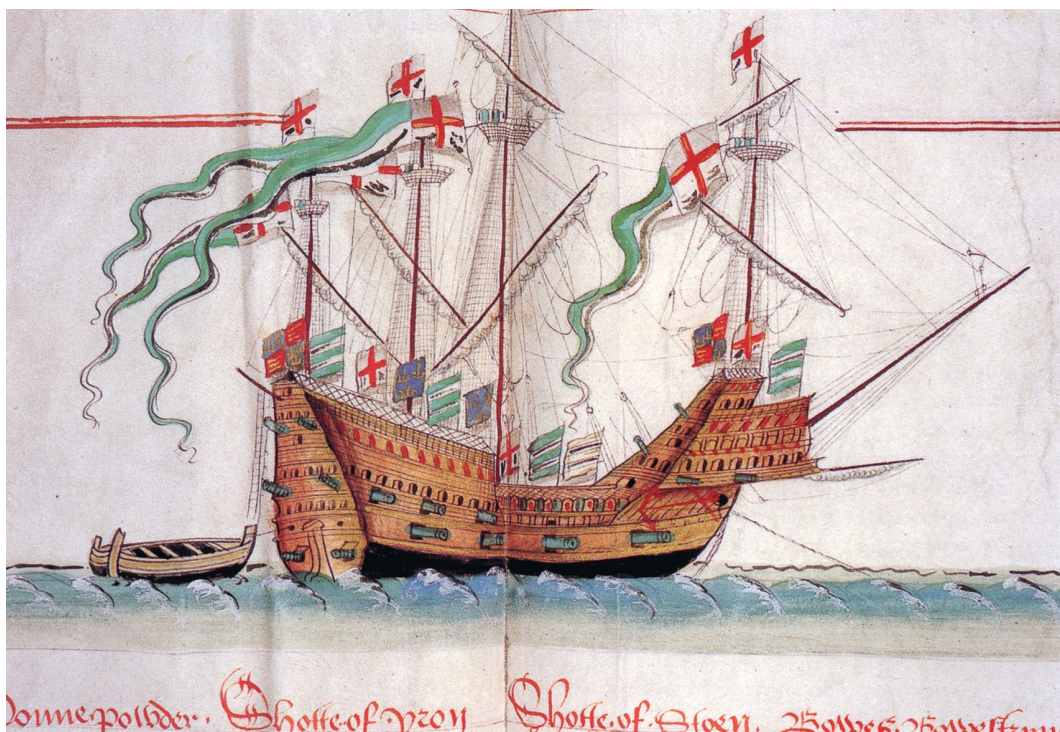 Gonnepowder. Shotte of yron Shotte of Stoen. Bowes. Bowestrin